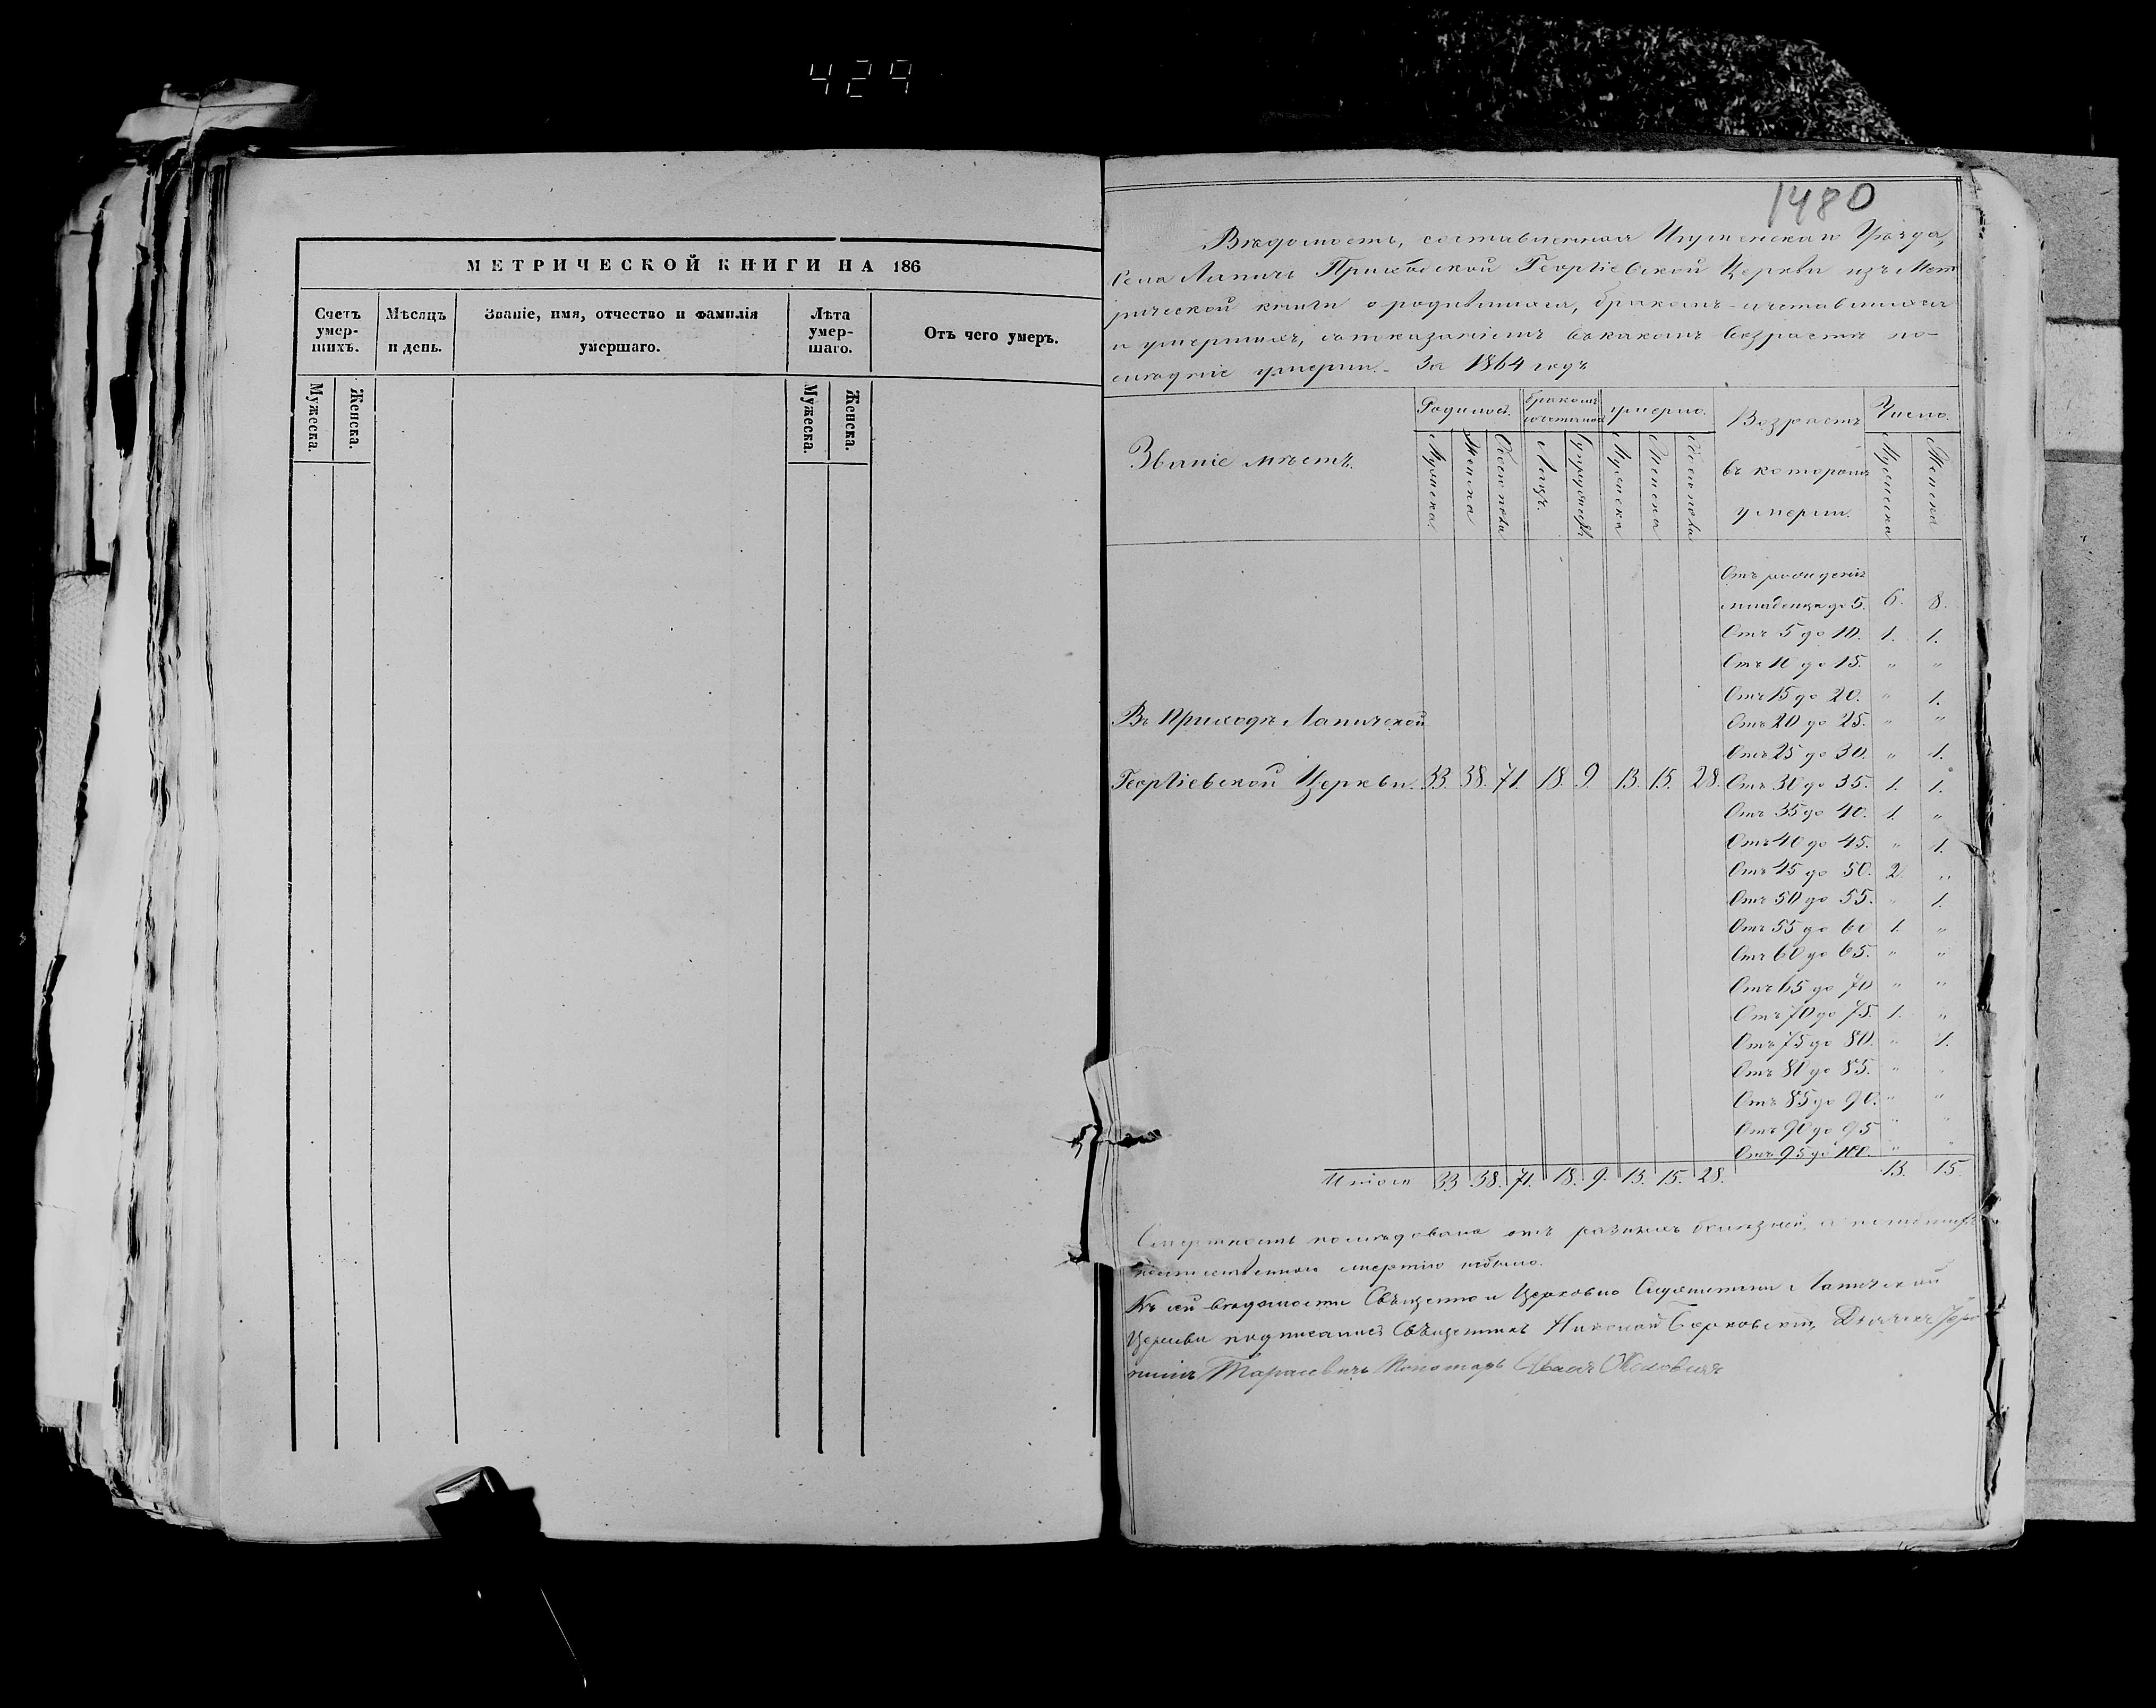 429
МЕТРИЧЕСКОЙ КНИГИ НА 186
Счетъ умер-шихъ.
Мужеска.
Женска.
Мѣсяцъ и день.
Званіе, имя, отчество и фамилія умершаго.
Лѣта умер-шаго.
Мужеска.
Женска.
Отъ чего умеръ.
1480
Вѣдомость, составленная Игуменскаго Уѣзда,
Села Лапичъ Приходской Георгіевской Церкви изъ Мет
рической книги о родившихся, бракомъ-сочетавшихся
и умершихъ, съ показаніемъ въ какомъ возрастѣ по-
слѣдніе умерли. За 1864 годъ
Званіе мѣстъ.
Родилось.
Мужеска.
Женска
Обоего пола
бракомъ
Лицъ.
Супружествъ
умерло.
Мужеска
Женска
Обоего пола
Возрастъ
въ которомъ
умерли.
Число.
Мужеска
Женска
Отъ рожденія
младенца до 5. 6. 8.
Отъ 5 до 10. 1. 1.
Отъ 10 до 15. " "
Отъ 15 до 20. " 1.
Въ Приходѣ Лапичской
Отъ 20 до 25. " "
Отъ 25 до 30. " 1.
Георгіевской Церкви. 33. 38. 71. 18. 9. 13. 15. 28. Отъ 30 до 35. 1. 1.
Отъ 35 до 40. 1. "
Отъ 40 до 45. " 1.
Отъ 45 до 50. 2. "
Отъ 50 до 55. " 1.
Отъ 55 до 60 1. "
Отъ 60 до 65. " "
Отъ 65 до 70 " "
Отъ 70 до 75. 1. "
Отъ 75 до 80. " 1.
Отъ 80 до 85. " "
Отъ 85 до 90. " "
Отъ 90 до 95 " "
Отъ 95 до 100. " "
Итого 33 38. 71. 18. 9. 13. 15. 28. 13. 15.
Смертность послѣдовала отъ разныхъ болѣзней, а
смертію небыло.
Къ сей вѣдомости Священно и Церковно Служители Лапичской
Церкви подписались Священникъ Николай Берковскій, Дьячекъ
Тарасевичъ Пономарь Иванъ